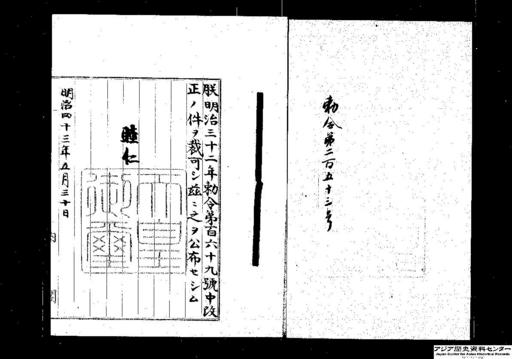 勅令第二百五十三号
朕明治三十二年勅令第百六十九號中改
正ノ件ヲ裁可シ茲ニ之ヲ公布セシム
睦仁
天皇
御璽
明治四十三年五月三十日
内閣
アジア歴史資料センター
Japan Center for Asian Historical Records